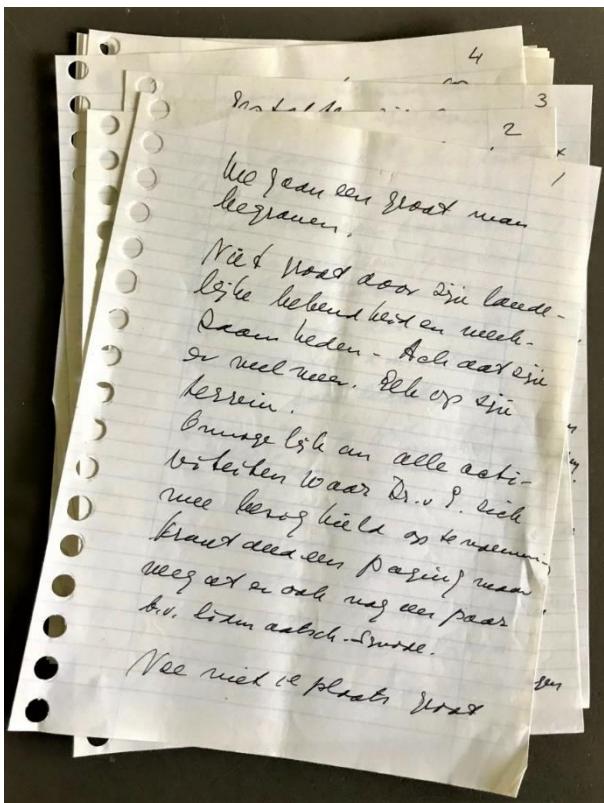 4
3
2
1
We gaan een groot man
begraven.
Niet groot door zijn lande-
lijke bekendheid en werk-
zaamheden - Ach dat zijn
er veel meer. Elk op zijn
terrein.
Onmogelijk om alle acti-
viteiten waar Dr. v P. zich
mee bezig hield op te noemen
krant deed een poging maar
vergat er ook nog een paar
b.v. lidmaatsch. Synode.
Nee niet in plaats groot
gen